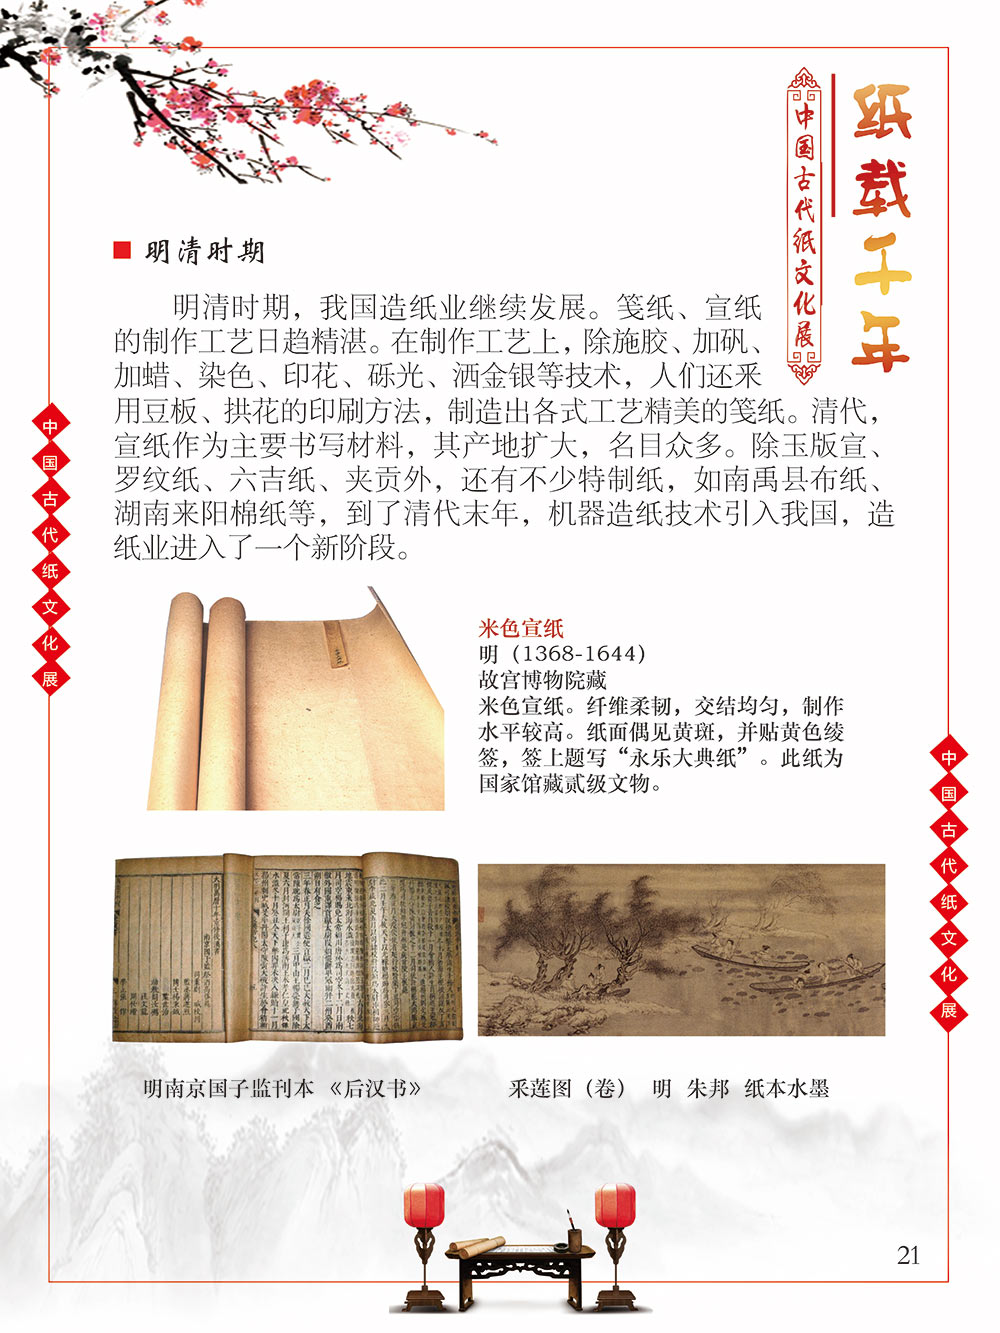 纸载千年
中国古代纸文化展
明清时期
明清时期，我国造纸业继续发展。笺纸、宣纸
的制作工艺日趋精湛。在制作工艺上，除施胶、加矾、
加蜡、染色、印花、砾光、洒金银等技术，人们还采
用豆板、拱花的印刷方法，制造出各式工艺精美的笺纸。清代，
宣纸作为主要书写材料，其产地扩大，名目众多。除玉版宣、
罗纹纸、六吉纸、夹贡外，还有不少特制纸，如南禹县布纸、
湖南来阳棉纸等，到了清代末年，机器造纸技术引入我国，造
纸业进入了一个新阶段。
中国古代纸文化展
米色宣纸
明（1368-1644）
故宫博物院藏
米色宣纸。纤维柔韧，交结均匀，制作
水平较高。纸面偶见黄斑，并贴黄色绫
签，签上题写“永乐大典纸”。此纸为
国家馆藏贰级文物。
中国古代纸文化展
明南京国子监刊本《后汉书》
采莲图（卷） 明 朱邦 纸本水墨
21